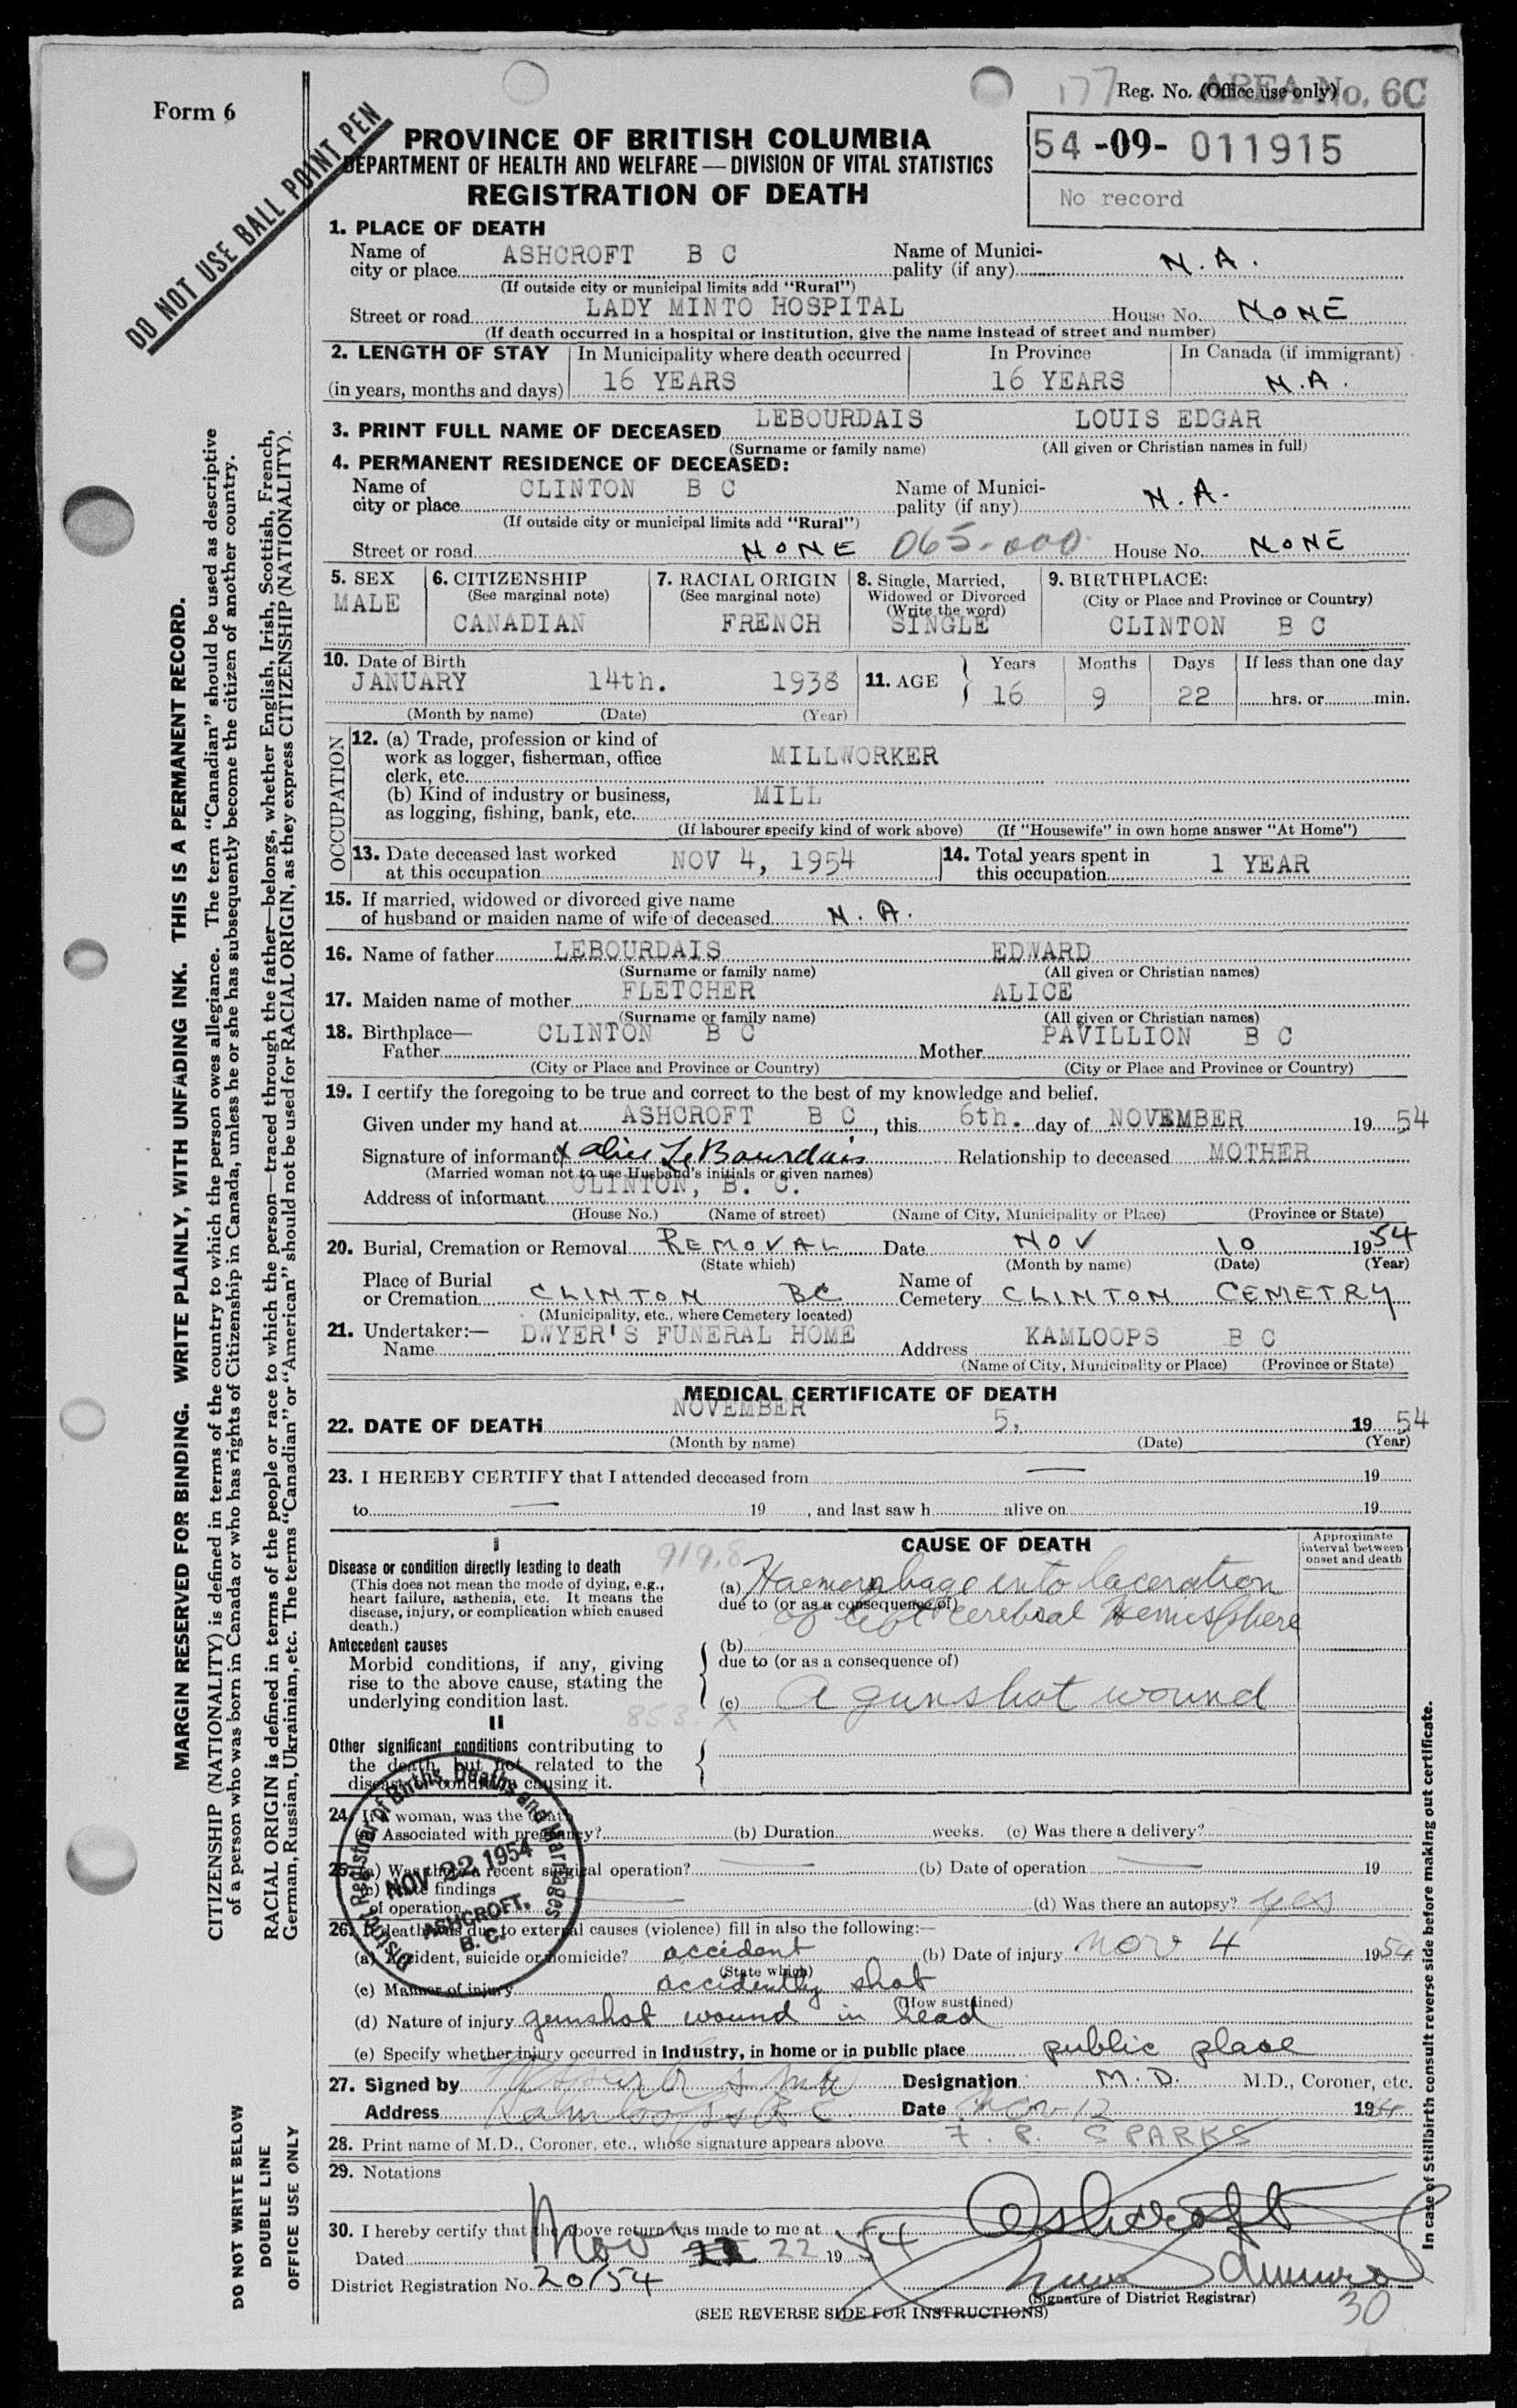 Form 6
DO NOT USE BALL POINT PEN
177
Reg. No. (Office use only)
AREA No. 6C
54 -09- 011915
No record
PROVINCE OF BRITISH COLUMBIA
DEPARTMENT OF HEALTH AND WELFARE — DIVISION OF VITAL STATISTICS
REGISTRATION OF DEATH
1. PLACE OF DEATH
Name of city or place ASHCROFT B C Name of Municipality (if any) N.A.
(If outside city or municipal limits add "Rural")
Street or road LADY MINTO HOSPITAL House No. NONE
(If death occurred in a hospital or institution, give the name instead of street and number)
2. LENGTH OF STAY In Municipality where death occurred In Province In Canada (if immigrant)
(in years, months and days) 16 YEARS 16 YEARS N.A.
3. PRINT FULL NAME OF DECEASED LEBOURDAIS LOUIS EDGAR
(Surname or family name) (All given or Christian names in full)
4. PERMANENT RESIDENCE OF DECEASED:
Name of city or place CLINTON B C Name of Municipality (if any) N.A.
(If outside city or municipal limits add "Rural")
Street or road NONE 065-000 House No. NONE
5. SEX 6. CITIZENSHIP 7. RACIAL ORIGIN 8. Single, Married, 9. BIRTHPLACE:
(See marginal note) (See marginal note) Widowed or Divorced (City or Place and Province or Country)
(Write the word)
MALE CANADIAN FRENCH SINGLE CLINTON B C
10. Date of Birth 11. AGE Years Months Days If less than one day
JANUARY 14th. 1938 16 9 22 hrs. or min.
(Month by name) (Date) (Year)
OCCUPATION
12. (a) Trade, profession or kind of
work as logger, fisherman, office
clerk, etc. MILLWORKER
(b) Kind of industry or business,
as logging, fishing, bank, etc. MILL
(If labourer specify kind of work above) (If "Housewife" in own home answer "At Home")
13. Date deceased last worked
at this occupation NOV 4, 1954
14. Total years spent in
this occupation 1 YEAR
15. If married, widowed or divorced give name
of husband or maiden name of wife of deceased N.A.
16. Name of father LEBOURDAIS EDWARD
(Surname or family name) (All given or Christian names)
17. Maiden name of mother FLETCHER ALICE
(Surname or family name) (All given or Christian names)
18. Birthplace—
Father CLINTON B C Mother PAVILLION B C
(City or Place and Province or Country) (City or Place and Province or Country)
19. I certify the foregoing to be true and correct to the best of my knowledge and belief.
Given under my hand at ASHCROFT B C, this 6th. day of NOVEMBER 1954
Signature of informant x Alice LeBourdais Relationship to deceased MOTHER
(Married woman not to use Husband's initials or given names)
Address of informant CLINTON, B. C.
(House No.) (Name of street) (Name of City, Municipality or Place) (Province or State)
20. Burial, Cremation or Removal REMOVAL Date NOV 10 1954
(State which) (Month by name) (Date) (Year)
Place of Burial or Cremation CLINTON BC Name of Cemetery CLINTON CEMETRY
(Municipality, etc., where Cemetery located)
21. Undertaker:—
Name DWYER'S FUNERAL HOME Address KAMLOOPS B C
(Name of City, Municipality or Place) (Province or State)
MEDICAL CERTIFICATE OF DEATH
22. DATE OF DEATH NOVEMBER 5, 1954
(Month by name) (Date) (Year)
23. I HEREBY CERTIFY that I attended deceased from — 19
to — 19 , and last saw h alive on 19
I
CAUSE OF DEATH
Approximate interval between onset and death
Disease or condition directly leading to death 919.8
(This does not mean the mode of dying, e.g.,
heart failure, asthenia, etc. It means the
disease, injury, or complication which caused
death.)
(a) Haemorrhage into laceration
due to (or as a consequence of)
of left cerebral hemisphere
Antecedent causes
Morbid conditions, if any, giving
rise to the above cause, stating the
underlying condition last.
(b)
due to (or as a consequence of)
(c) A gunshot wound
853.X
II
Other significant conditions contributing to
the death, but not related to the
disease or condition causing it.
24. If a woman, was the death
(a) Associated with pregnancy? (b) Duration weeks. (c) Was there a delivery?
25. (a) Was there a recent surgical operation? — (b) Date of operation — 19
(c) State findings
of operation — (d) Was there an autopsy? yes
District Registrar of Births, Deaths and Marriages
NOV 22 1954
ASHCROFT,
B. C.
26. If death was due to external causes (violence) fill in also the following:—
(a) Accident, suicide or homicide? accident (b) Date of injury Nov 4 1954
(State which)
(c) Manner of injury accidently shot
(How sustained)
(d) Nature of injury gunshot wound in head
(e) Specify whether injury occurred in industry, in home or in public place public place
27. Signed by Designation M.D. M.D., Coroner, etc.
Address Kamloops BC Date Nov 12 1954
28. Print name of M.D., Coroner, etc., whose signature appears above F. P. SPARKS
29. Notations
30. I hereby certify that the above return was made to me at Ashcroft
Dated Nov 22 1954
District Registration No. 20/54
(Signature of District Registrar)
30
(SEE REVERSE SIDE FOR INSTRUCTIONS)
MARGIN RESERVED FOR BINDING. WRITE PLAINLY, WITH UNFADING INK. THIS IS A PERMANENT RECORD.
CITIZENSHIP (NATIONALITY) is defined in terms of the country to which the person owes allegiance. The term "Canadian" should be used as descriptive
of a person who was born in Canada or who has rights of Citizenship in Canada, unless he or she has subsequently become the citizen of another country.
RACIAL ORIGIN is defined in terms of the people or race to which the person—traced through the father—belongs, whether English, Irish, Scottish, French,
German, Russian, Ukrainian, etc. The terms "Canadian" or "American" should not be used for RACIAL ORIGIN, as they express CITIZENSHIP (NATIONALITY).
DO NOT WRITE BELOW
DOUBLE LINE
OFFICE USE ONLY
In case of Stillbirth consult reverse side before making out certificate.